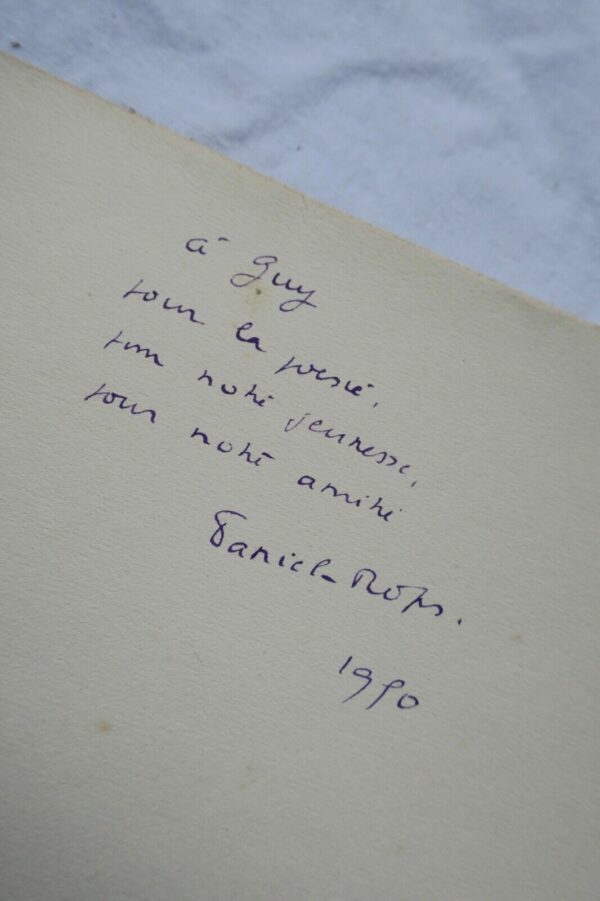 à Guy
pour la poésie,
pour notre jeunesse,
pour notre amitié
Daniel-Rops.
1950